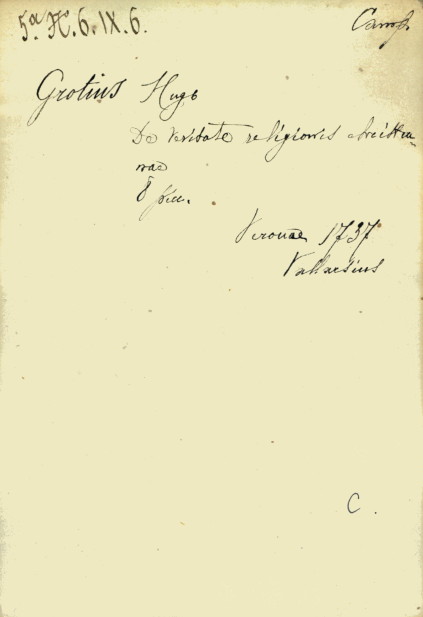 5.ª H. 6. IX. 6.
Camp.
Grotius Hugo
De veritate religionis christia-
nae
8
Veronae 1737
Vallarsius
C.